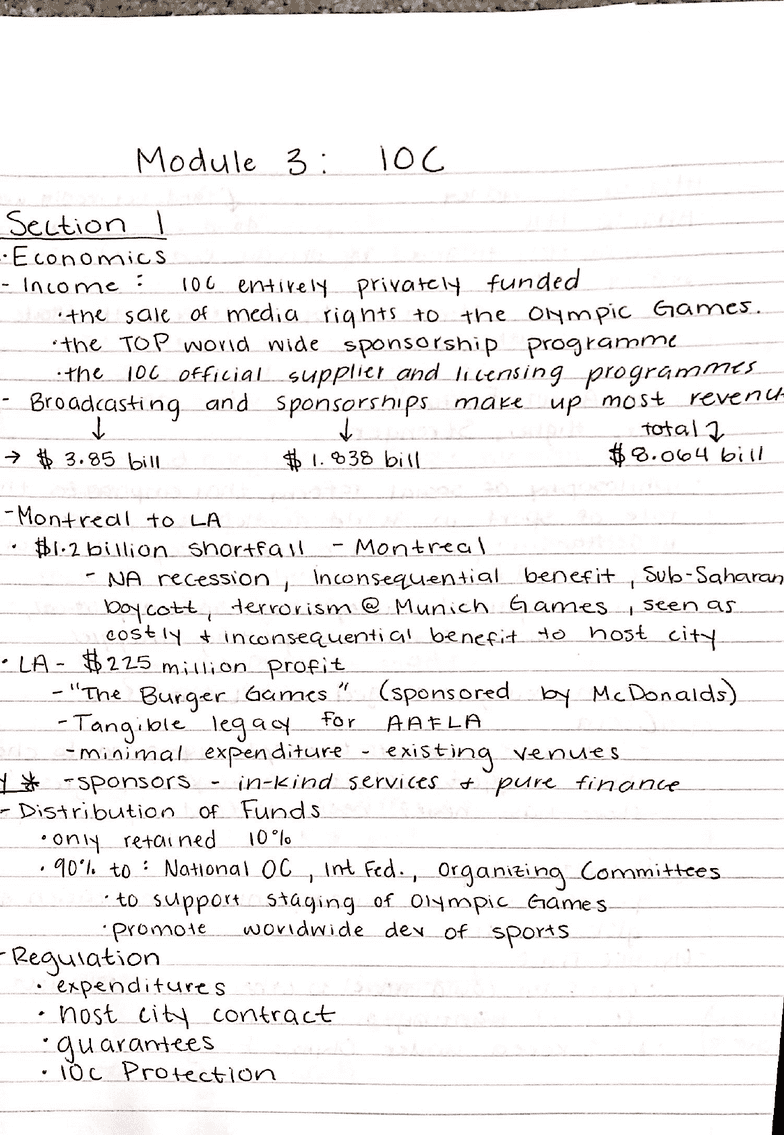 Module 3: IOC
Section 1
·Economics
- Income: IOC entirely privately funded
·the sale of media rights to the Olympic Games.
·the TOP world wide sponsorship programme
·the IOC official supplier and licensing programmes
- Broadcasting and sponsorships make up most
↓ ↓ total ↴
→ $ 3.85 bill $ 1.838 bill $8.064 bill
-Montreal to LA
· $1.2 billion shortfall - Montreal
- NA recession, inconsequential benefit, Sub-Saharan
boycott, terrorism @ Munich Games, seen as
costly + inconsequential benefit to host city
· LA - $225 million profit
- "The Burger Games" (sponsored by McDonalds)
- Tangible legacy for AAFLA
-minimal expenditure - existing venues
* -sponsors - in-kind services + pure finance
- Distribution of Funds
·only retained 10%
· 90% to: National OC, Int Fed., Organizing Committees
· to support staging of Olympic Games
·promote worldwide dev of sports
-Regulation
· expenditures
· host city contract
· guarantees
· IOC Protection